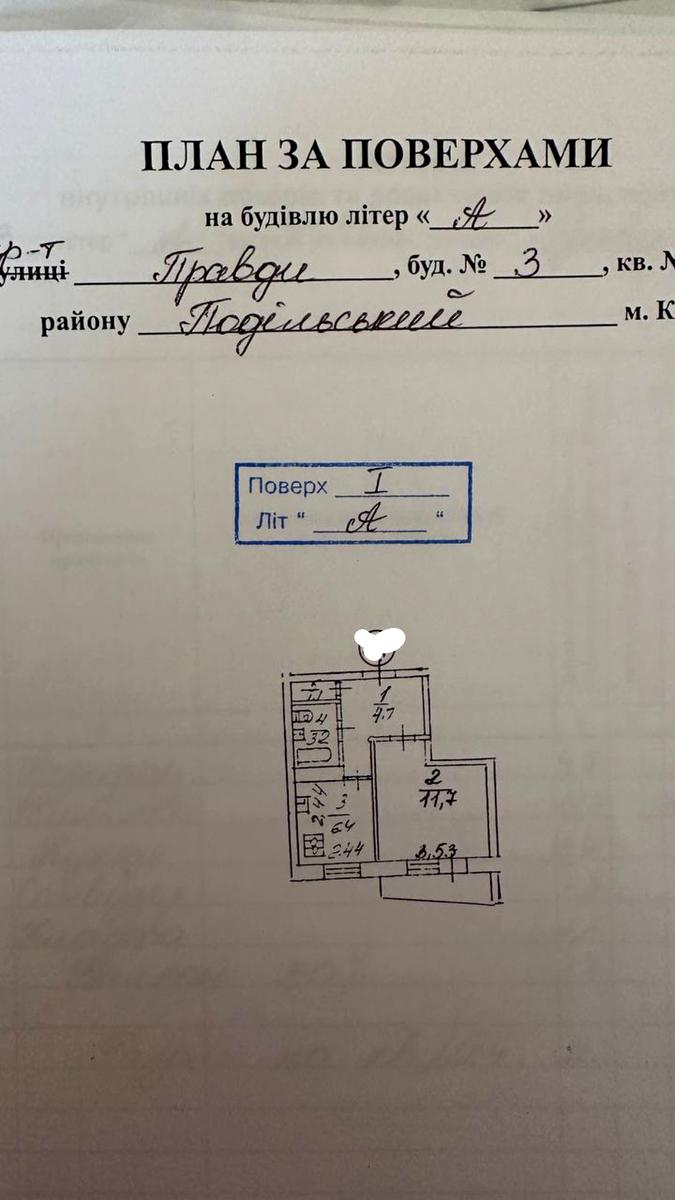 ПЛАН ЗА ПОВЕРХАМИ
на будівлю літер « А »
р-т
улиці Правди , буд. № 3 , кв. №
району Подільський м. К
Поверх I
Літ “ А “
1
4.7
4
32
2
11,7
3
6.4
2.44
2.44
3,53